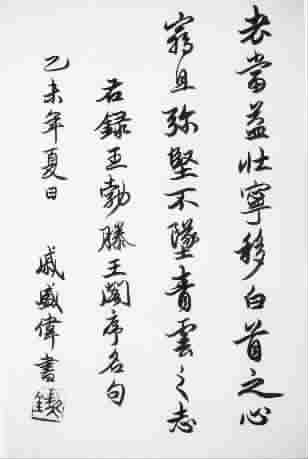 老當益壯寧移白首之心
窮且弥堅不墜青雲之志
右録王勃滕王閣序名句
乙未年夏日 戚盛偉書